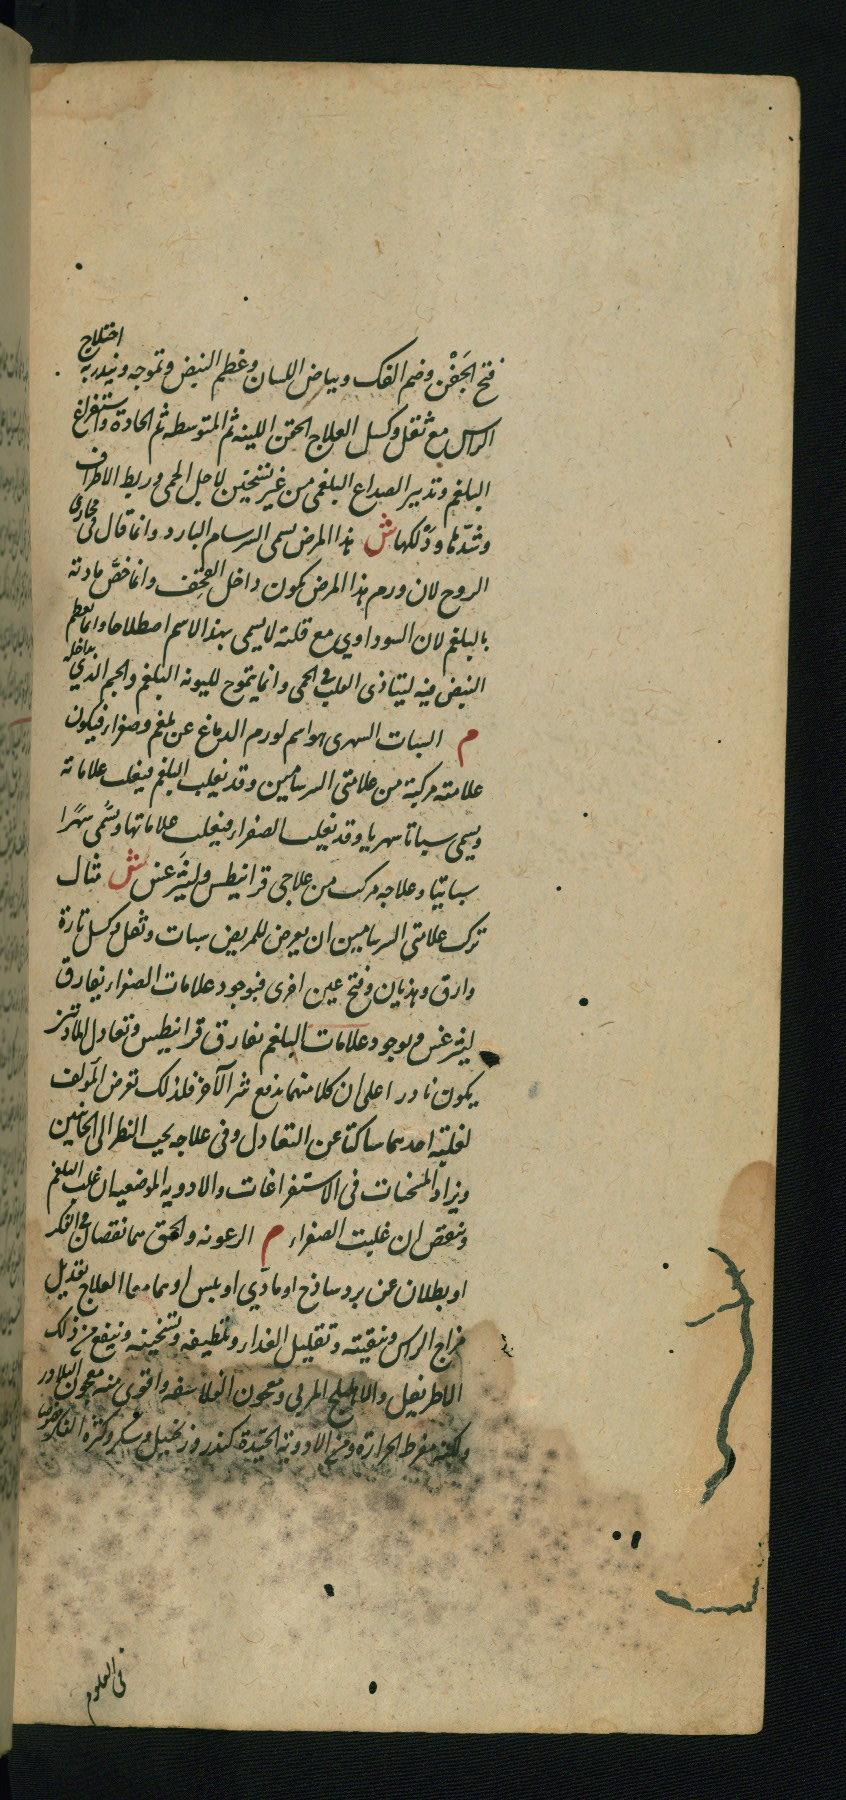 فتح الجَفْن وضم الفك وبياض اللسان وعظم النبض وتموجه ويندر به اختلاج
الراس مع ثقل وكسل العلاج الحقن اللينه ثم المتوسطه ثم الحادة واستفراغ
البلغم وتدبير الصداع البلغمى من غير تسخين لاجل الحمى وربط الاطراف
وشدّها ودَلكها ش هذا المرض يسمى السرسام البارد وانما قال فى مجارى
الروح لان ورم هذا المرض يكون داخل القحِف وانما خصَّ مادته
بالبلغم لان السوداوي مع قلته لا يسمى بهذا الاسم اصطلاحا وانما يعظم
النبض فيه ليتاذى القلب فى الحمى وانما يتموج لليونه البلغم والجرم الذي يداخله
م السبات السهرى هو اسم لورم الدماغ عن بلغم وصفراء فيكون
علامته مركبة من علامتى السرسامين وقد يغلب البلغم فيغلب علاماته
ويسمى سباتا سهريا وقد تغلب الصفراء فيغلب علاماتها ويسُمى سهَرا
سباتيا وعلاجه مركب من علاجى قرانيطس وليثَرغس ش مثال
تركب علامتى السرسامين ان يعرض للمريض سبات وثقل وكسل تارة
وارق وهذيان وفتح عين اخرى فبوجود علامات الصفراء يفارق
ليثرغس وبوجود علامات البلغم يفارق قرانيطس وتعادل المادتين
يكون نادرا على ان كلا منهما يدفع شر الآخر فلذلك تعرض المؤلف
لغلبة احدهما ساكتا عن التعادل وفى علاجه يجب النظر الى الجانبين
ويزاد المسخنات فى الاستفراغات والادويه الموضعيه ان غلب البلغم
وينقص ان غلبت الصفراء م الرعونه والحمق هما نقصان فى الفكر
او بطلان عن برد ساذج او مادّي او يبس او هما معا العلاج تعديل
مزاج الراس وتنقيته وتقليل الغداء وتلطيفه وتسخينه وينفع من ذلك
الاطريفل والاهليلج المربى ومعجون الفلاسفه واقوى منه معجون البلادر
ولكنه مفرط الحرارة ومن الادوية الجيّدة كندر وزنجبيل وسكر وكثرة الفكر خصوصا
فى العلوم